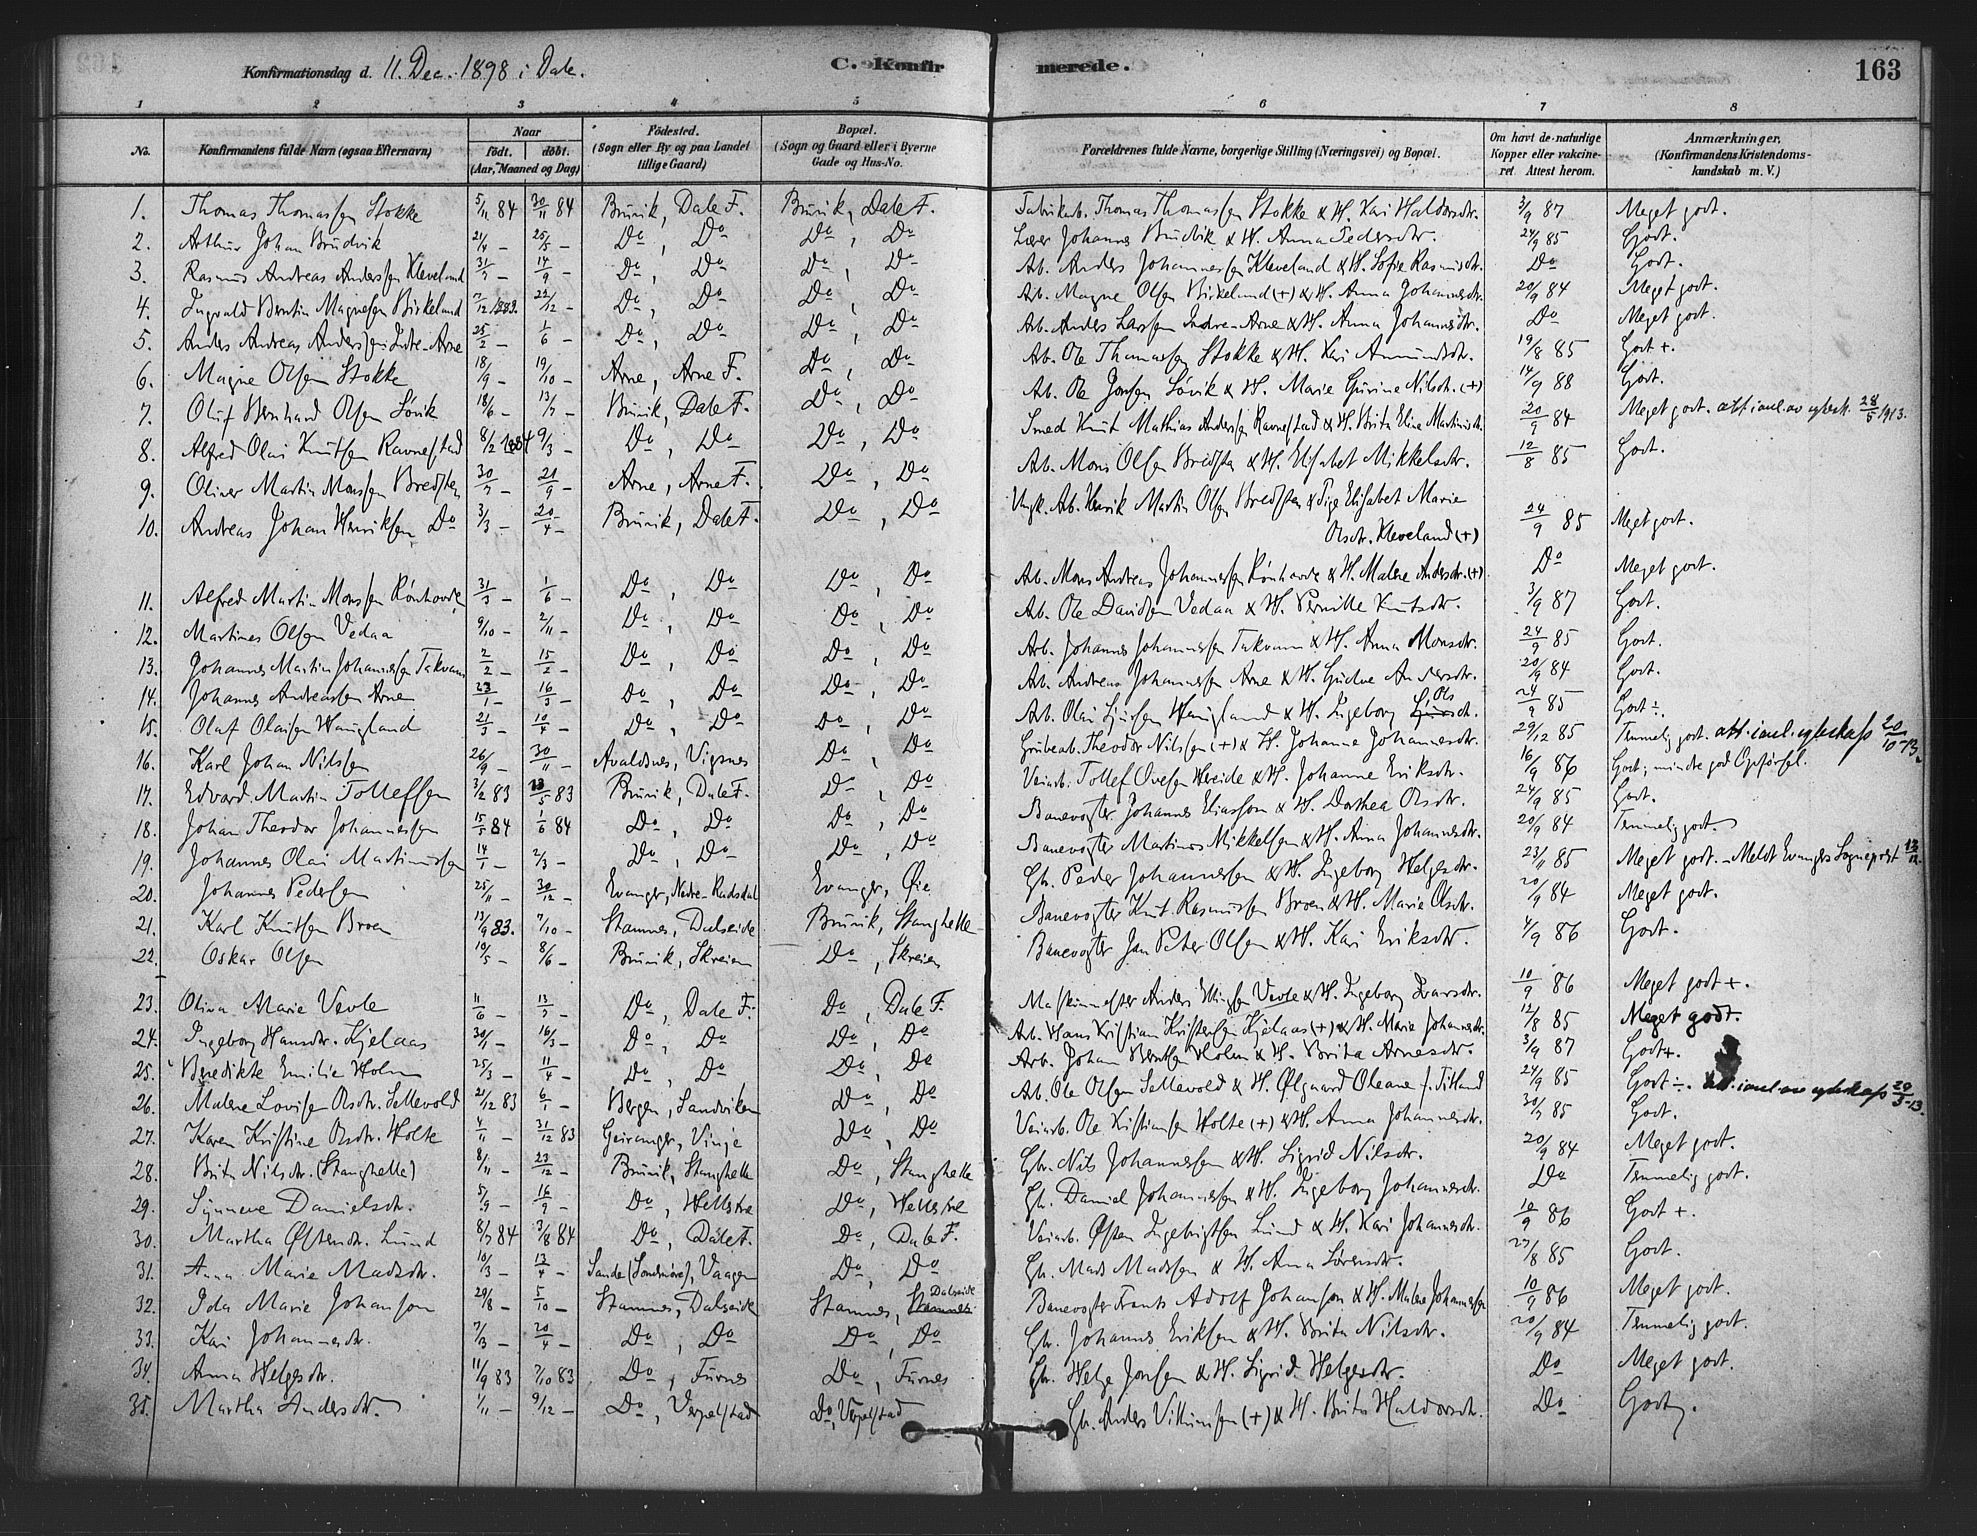 Konfirmationsdag d. 11. Dec. 1898 i Dale.
C. Konfirmerede.
163
1 2 3 4 5 6 7 8
No.
Konfirmandens fulde Navn (ogsaa Efternavn)
Naar
födt. döbt.
(Aar, Maaned og Dag)
Födested.
(Sogn eller By og paa Landet
tillige Gaard)
Bopæl.
(Sogn og Gaard eller i Byerne
Gade og Hus-No.
Forældrenes fulde Navne, borgerlige Stilling (Næringsvei) og Bopæl.
Om havt de naturlige
Kopper eller vakcine-
ret Attest herom.
Anmærkninger,
(Konfirmandens Kristendoms-
kundskab m. V.)
1. Thomas Thomassen Stokke 5/11 84 30/11 84 Bruvik, Dale F. Bruvik, Dale F. Fabrikarb. Thomas Thomassen Stokke & H. Kari Haldorsdtr. 3/9 87 Meget godt.
2. Arthur Johan Brudvik 21/4 – 25/5 – Do, Do Do, Do Lærer Johannes Brudvik & H. Anna Pedersdtr. 24/9 85 Godt.
3. Rasmus Andreas Anderssen Kleveland 31/7 – 14/9 – Do, Do Do, Do Arb. Anders Johannessen Kleveland & H. Sofie Rasmusdtr. Do Godt.
4. Ingvald Berntin Magnesen Birkeland 7/12 1883. 22/12 – Do, Do Do, Do Arb. Magne Olsen Birkeland (+) & H. Anna Johannesdtr. 20/9 84 Meget godt.
5. Anders Andreas Anderssen Indre-Arne 25/2 – 1/6 – Do, Do Do, Do Arb. Anders Larssen Indre-Arne & H. Anna Johannesdtr. Do Meget godt.
6. Magne Olsen Stokke 18/9 – 19/10 – Arne, Arne F. Do, Do Arb. Ole Thomassen Stokke & H. Kari Amundsdtr. 19/8 85 Godt +.
7. Oluf Bernhard Olsen Lövik 18/6 – 13/7 – Bruvik, Dale F. Do, Do Arb. Ole Jonsen Lövik & H. Marie Gurine Nilsdtr. (+) 14/9 88 Godt.
8. Alfred Olai Knutsen Ravnestad 8/2 1884 9/3 – Do, Do Do, Do Smed Knut Mathias Anderssen Ravnestad & H. Brita Eline Martinsdtr. 20/9 84 Meget godt. att. i anl. av 28/5 1913.
9. Oliver Martin Monssen Bredsten 30/7 – 21/9 – Arne, Arne F. Do, Do Arb. Mons Olsen Bredsten & H. Elisabet Mikkelsdtr. 12/8 85 Godt.
10. Andreas Johan Henriksen Do 3/3 – 20/4 – Bruvik, Dale F. Do, Do Ungk. Arb. Henrik Martin Olsen Bredsten & Pige Elisabet Marie
Olsdtr. Kleveland (+) 24/9 85 Meget godt.
11. Alfred Martin Monssen Rönhovde 31/3 – 1/6 – Do, Do Do, Do Arb. Mons Andreas Johannessen Rönhovde & H. Malene Andersdtr. (+) Do Meget godt.
12. Martines Olsen Vedaa 9/10 – 2/11 – Do, Do Do, Do Arb. Ole Davidsen Vedaa & H. Pernille Knutsdtr. 3/9 87 Godt.
13. Johannes Martin Johannessen Takvam 2/2 – 15/2 – Do, Do Do, Do Arb. Johannes Johannessen Takvam & H. Anna Monsdtr. 24/9 85 Godt.
14. Johannes Andreassen Arne 23/1 – 16/3 – Do, Do Do, Do Arb. Andreas Johannessen Arne & H. Gudve Andersdtr. 20/9 84 Godt.
15. Olaf Olaisen Haugland 21/3 – 10/4 – Do, Do Do, Do Arb. Olai Sjursen Haugland & H. Ingeborg Olsdtr. 24/9 85 Godt ÷.
16. Karl Johan Nilssen 26/9 – 30/11 – Avaldsnes, Vigsnes Do, Do Grubearb. Theodor Nilssen (+) & H. Johanne Johannesdtr. 29/12 85 Temmelig godt. att. i anl. 20/10-13.
17. Edvard Martin Tollefsen 3/2 83 13/5 83 Bruvik, Dale F. Do, Do Veiarb. Tollef Ovesen Hereide & H. Johanne Eriksdtr. 16/9 86 Godt; mindre god Opførsel.
18. Johan Theodor Johannessen 15/5 84 1/6 84 Do, Do Do, Do Banevogter Johannes Eliasson & H. Dorthea Olsdtr. 24/9 85 Godt.
19. Johannes Olai Martinussen 14/1 – 2/3 – Do, Do Do, Do Banevogter Martinus Mikkelsen & H. Anna Johannesdtr. 20/9 84 Temmelig godt.
20. Johannes Pedersen 25/11 – 30/12 – Evanger, Nedre-Rasdal Evanger, Øie Gbr. Peder Johannessen & H. Ingeborg Helgesdtr. 23/11 85 Meget godt. – Meldt Evangers Sogneprest 13/12.
21. Karl Knutsen Broen 13/9 83. 7/10 – Stamnes, Dalseide Bruvik, Stanghelle Banevogter Knut Rasmussen Broen & H. Marie Olsdtr. 20/9 84 Meget godt.
22. Oskar Olsen 10/5 – 8/6 – Bruvik, Skreien Do, Skreien Banevogter Jan Peter Olsen & H. Kari Eriksdtr. 4/9 86 Godt.
23. Olina Marie Vevle 11/6 – 13/7 – Do, Dale F. Do, Dale F. Maskinmester Anders Ellingsen Vevle & H. Ingeborg Ivarsdtr. 10/9 86 Meget godt +.
24. Ingeborg Hansdtr. Kjelaas 30/1 – 16/3 – Do, Do Do, Do Arb. Hans Kristian Kristensen Kjelaas (+) & H. Marie Johannesdtr. 12/8 85 Meget godt.
25. Benedikte Emilie Holm 25/3 – 11/4 – Do, Do Do, Do Arb. Johan Berntsen Holm & H. Brita Arnesdtr. 3/9 87 Godt +.
26. Malene Lovise Olsdtr. Sellevold 21/12 83 6/1 – Bergen, Sandviken Do, Do Arb. Ole Olsen Sellevold & H. Ølgaard Oleane f. Titland 24/9 85 Godt ÷. att. i anl. av 20/3-13.
27. Karen Kristine Olsdtr. Holte 4/11 – 31/12 83 Geiranger, Vinje Do, Do Veiarb. Ole Kristiansen Holte (+) & H. Anna Johannesdtr. 30/7 85 Godt.
28. Brita Nilsdtr. (Stanghelle) 8/11 – 23/12 – Bruvik, Stanghelle Do, Stanghelle Gbr. Nils Johannessen & H. Sigrid Nilsdtr. 20/9 84 Meget godt.
29. Synneve Danielsdtr. 5/9 – 16/9 – Do, Hellstre Do, Hellstre Gbr. Daniel Johannessen & H. Ingeborg Johannesdtr. Do Temmelig godt.
30. Martha Østensdtr. Lund 8/7 84 3/8 84 Do, Dale F. Do, Dale F. Veiarb. Østen Ingebrigtsen Lund & H. Kari Johannesdtr. 10/9 86 Godt +.
31. Anna Marie Madsdtr. 10/3 – 13/4 – Sande (Söndmöre), Vaagen Do, Do Gbr. Mads Madssen & H. Anna Sörensdtr. 27/8 85 Godt.
32. Ida Marie Johanson 29/8 – 5/10 – Stamnes, Dalseide Stamnes, Dalseide Banevogter Frants Adolf Johanson & H. Malene Johannessen 10/9 86 Meget godt.
33. Kari Johannesdtr. 7/3 – 20/4 – Do, Do Do, Do Gbr. Johannes Eriksen & H. Brita Nilsdtr. 20/9 84 Temmelig godt.
34. Anna Helgesdtr. 11/9 83 7/10 83 Do, Furnes Do, Furnes Gbr. Helge Jonsen & H. Sigrid Helgesdtr. Do Meget godt.
35. Martha Andersdtr. 1/11 – 9/12 – Do, Verpelstad Do, Verpelstad Gbr. Anders Villumsen (+) & H. Brita Haldorsdtr. Do Godt.